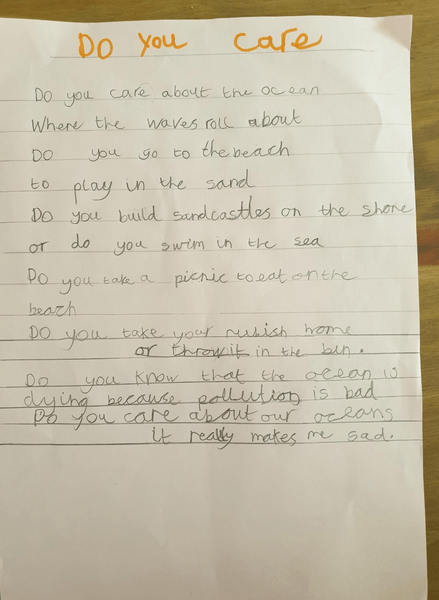 Do you care
Do you care about the ocean
Where the waves roll about
Do you go to the beach
to play in the sand
Do you build sandcastles on the shore
or do you swim in the sea
Do you take a picnic to eat on the
beach
Do you take your rubish home
or throw it in the bin.
Do you know that the ocean is
dying because pollution is bad
Do you care about our oceans
it really makes me sad.